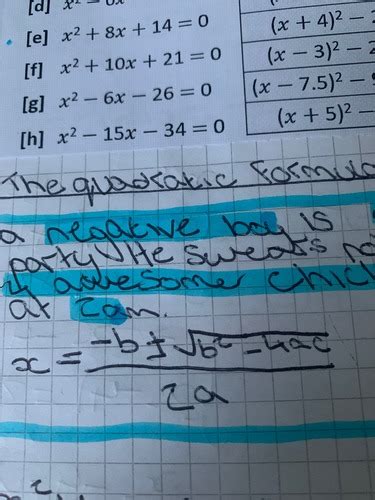 [e] x² + 8x + 14 = 0
[f] x² + 10x + 21 = 0
[g] x² − 6x − 26 = 0
[h] x² − 15x − 34 = 0
(x + 4)² −
(x − 3)² −
(x − 7.5)² −
(x + 5)² −
The quadratic Formula
a negative boy is
party He sweats
awesome
at 2am.
x = −b ± √b² − 4ac
2a